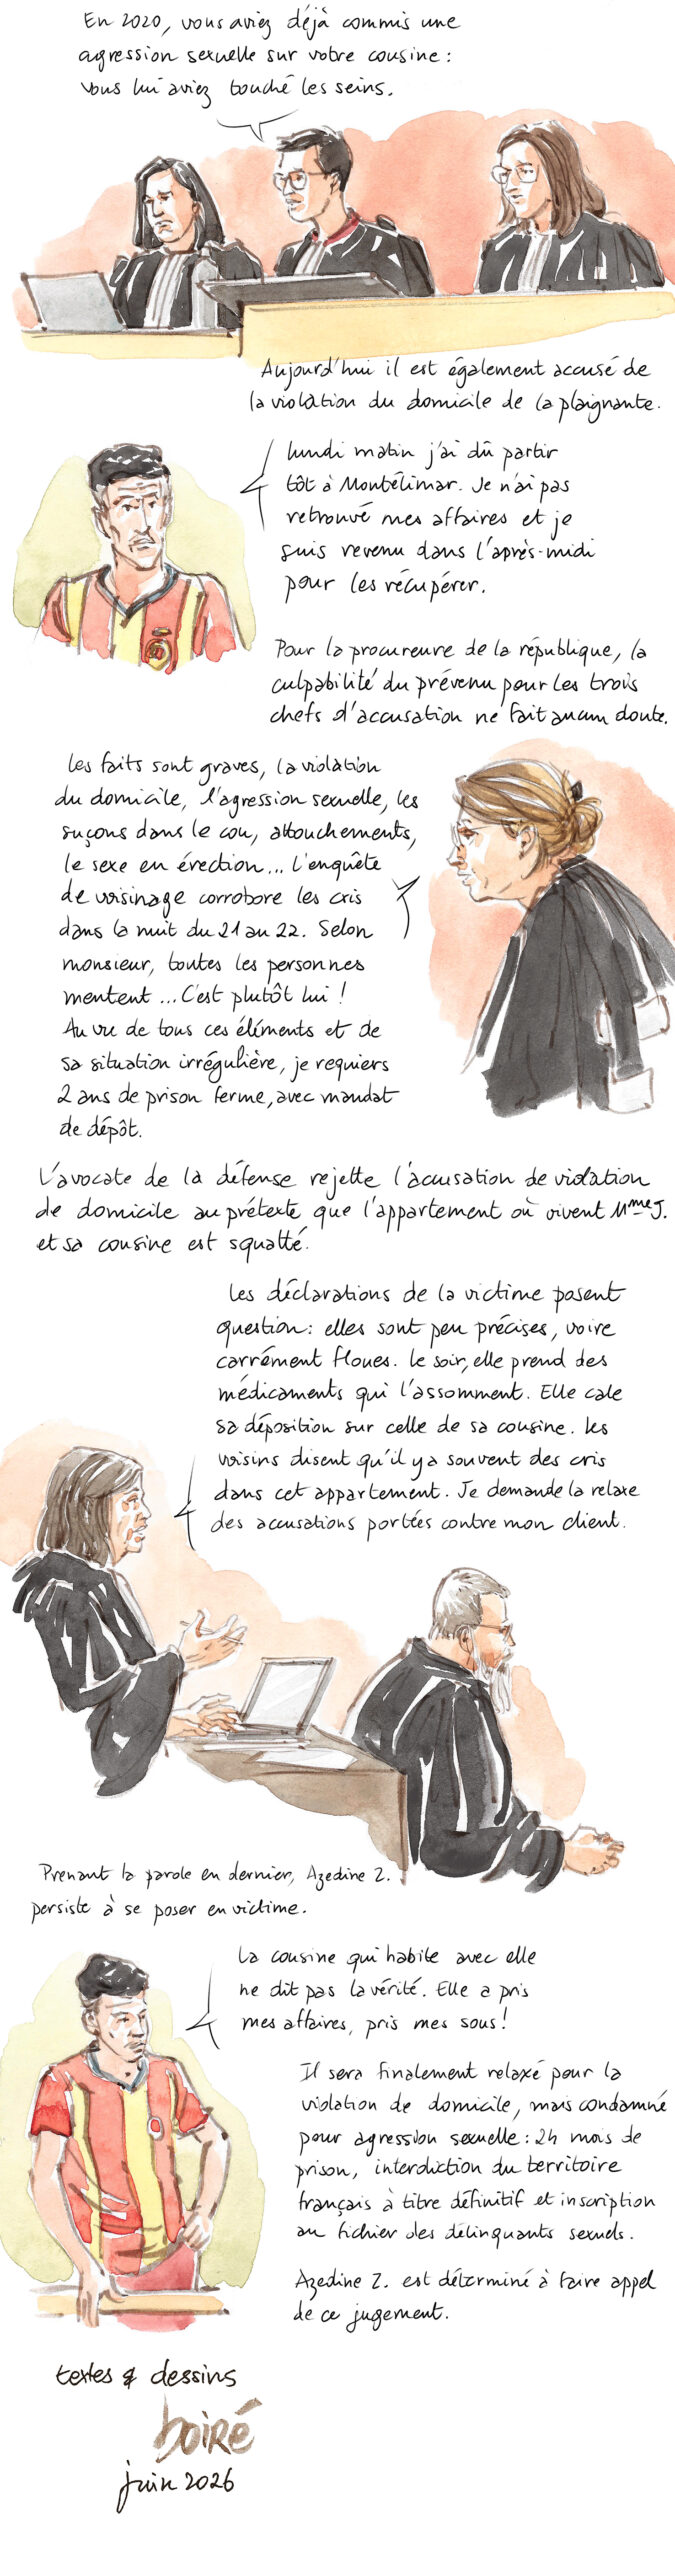 En 2020, vous aviez déjà commis une
agression sexuelle sur votre cousine :
vous lui aviez touché les seins.
Aujourd'hui il est également accusé de
la violation du domicile de la plaignante.
lundi matin j'ai dû partir
tôt à Montélimar. Je n'ai pas
retrouvé mes affaires et je
suis revenu dans l'après-midi
pour les récupérer.
Pour la procureure de la république, la
culpabilité du prévenu pour les trois
chefs d'accusation ne fait aucun doute.
Les faits sont graves, la violation
du domicile, l'agression sexuelle, les
suçons dans le cou, attouchements,
le sexe en érection... L'enquête
de voisinage corrobore les cris
dans la nuit du 21 au 22. Selon
monsieur, toutes les personnes
mentent ... C'est plutôt lui !
Au vu de tous ces éléments et de
sa situation irrégulière, je requiers
2 ans de prison ferme, avec mandat
de dépôt.
L'avocate de la défense rejette l'accusation de violation
de domicile au prétexte que l'appartement où vivent Mme J.
et sa cousine est squatté.
Les déclarations de la victime posent
question : elles sont peu précises, voire
carrément floues. Le soir, elle prend des
médicaments qui l'assomment. Elle cale
sa déposition sur celle de sa cousine. Les
voisins disent qu'il y a souvent des cris
dans cet appartement. Je demande la relaxe
des accusations portées contre mon client.
Prenant la parole en dernier, Azedine Z.
persiste à se poser en victime.
La cousine qui habite avec elle
ne dit pas la vérité. Elle a pris
mes affaires, pris mes sous !
Il sera finalement relaxé pour la
violation de domicile, mais condamné
pour agression sexuelle : 24 mois de
prison, interdiction du territoire
français à titre définitif et inscription
au fichier des délinquants sexuels.
Azedine Z. est déterminé à faire appel
de ce jugement.
textes & dessins
boiré
juin 2026